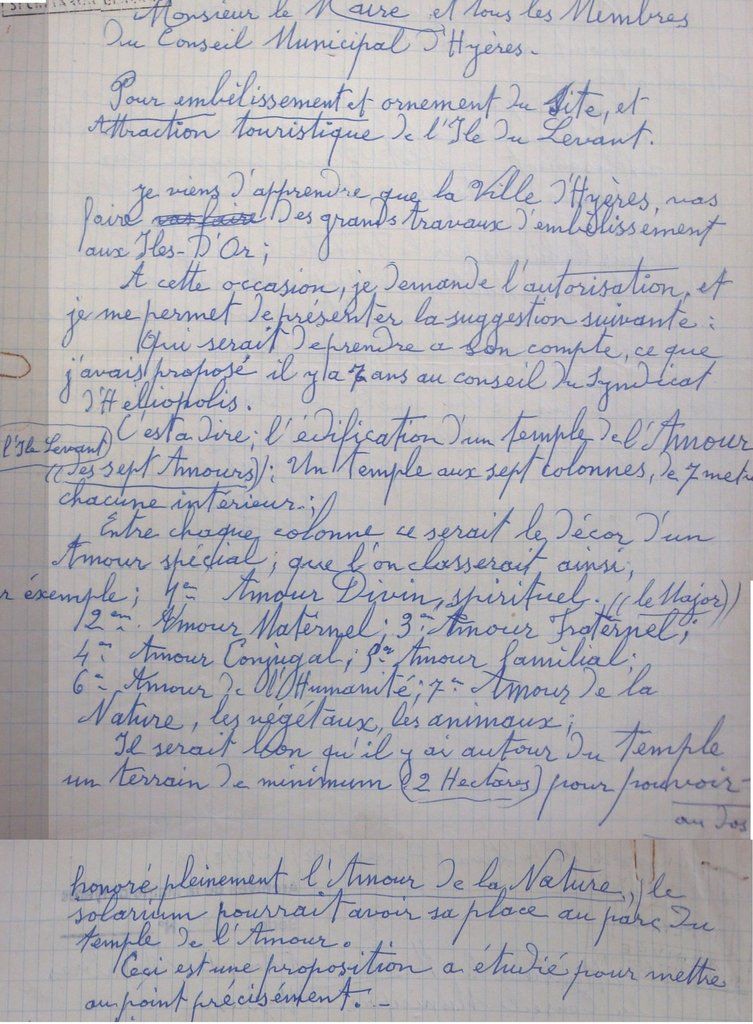 Monsieur le Maire et tous les Membres
du Conseil Municipal d'Hyères.
Pour embélissement et ornement du Site, et
Attraction touristique de l'Ile du Levant.
je viens d'apprendre que la Ville d'Hyères, vas
faire vas faire des grands travaux d'embélissement
aux Iles-D'Or;
A cette occasion, je demande l'autorisation, et
je me permet de présenter la suggestion suivante :
Qui serait de prendre a son compte, ce que
j'avais proposé il y a 7 ans au conseil du Syndicat
d'Heliopolis.
C'est a dire; l'édification d'un temple de l'Amour
l'Ile Levant
((des sept Amours)); Un temple aux sept colonnes, de 7 metr
chacune intérieur.;
Entre chaque colonne ce serait le décor d'un
Amour spécial; que l'on classerait ainsi,
r éxemple; 1er Amour Divin, spirituel. ((le Major))
2em Amour Maternel; 3em Amour Fraternel;
4em Amour Conjugal; 5em Amour familial;
6em Amour de l'Humanité; 7em Amour de la
Nature, les végétaux, les animaux;
Il serait bon qu'il y ai autour du temple
un terrain de minimum (2 Hectares) pour pouvoir
au dos
honoré pleinement l'Amour de la Nature, ; le
solarium pourrait avoir sa place au parc du
temple de l'Amour.
Ceci est une proposition a étudié pour mettre
au point précisément. -